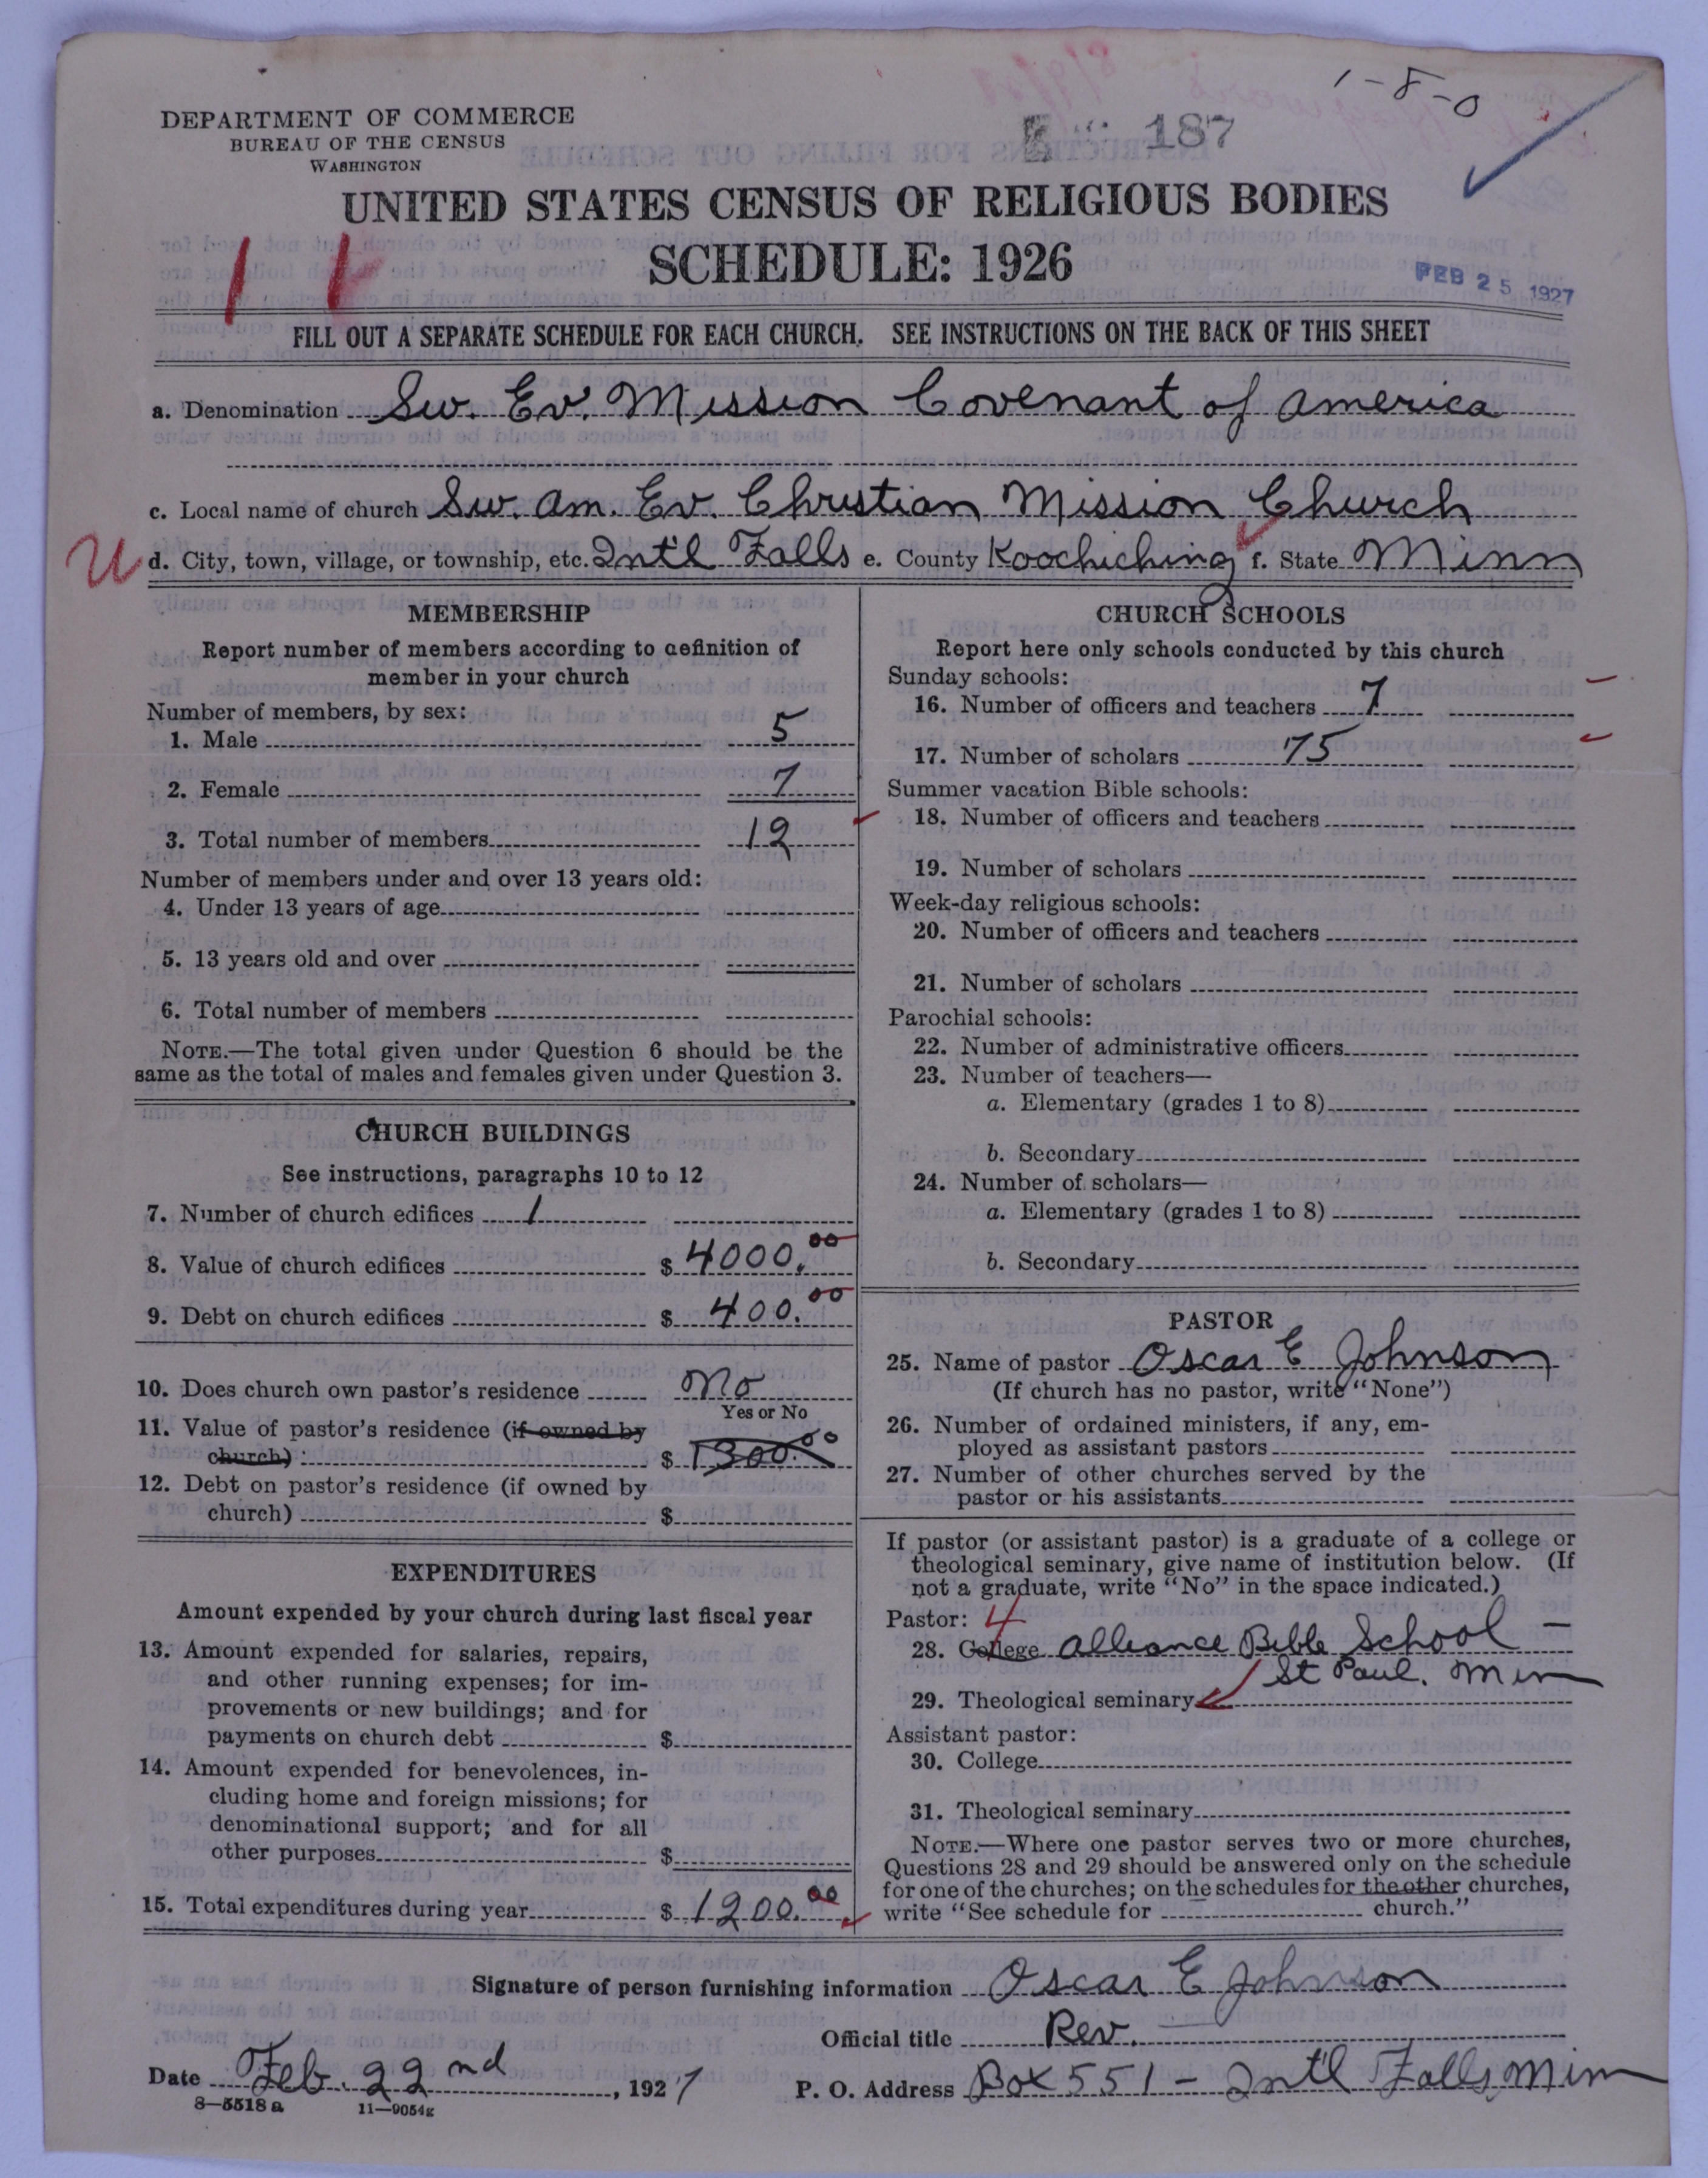 1-8-0
DEPARTMENT OF COMMERCE
BUREAU OF THE CENSUS
WASHINGTON
187
UNITED STATES CENSUS OF RELIGIOUS BODIES
SCHEDULE: 1926
FEB 25 1927
FILL OUT A SEPARATE SCHEDULE FOR EACH CHURCH. SEE INSTRUCTIONS ON THE BACK OF THIS SHEET
a. Denomination Sw. Ev. Mission Covenant of America
c. Local name of church Sw. Am. Ev. Christian Mission Church
U d. City, town, village, or township, etc. Int'l Falls e. County Koochiching f. State Minn
MEMBERSHIP
Report number of members according to definition of
member in your church
Number of members, by sex:
1. Male 5
2. Female 7
3. Total number of members 12
Number of members under and over 13 years old:
4. Under 13 years of age
5. 13 years old and over
6. Total number of members
NOTE.—The total given under Question 6 should be the
same as the total of males and females given under Question 3.
CHURCH BUILDINGS
See instructions, paragraphs 10 to 12
7. Number of church edifices 1
8. Value of church edifices $ 4000.00
9. Debt on church edifices $ 400.00
10. Does church own pastor's residence No
Yes or No
11. Value of pastor's residence (if owned by
church) : $ 1300.00
12. Debt on pastor's residence (if owned by
church) $
EXPENDITURES
Amount expended by your church during last fiscal year
13. Amount expended for salaries, repairs,
and other running expenses; for im-
provements or new buildings; and for
payments on church debt $
14. Amount expended for benevolences, in-
cluding home and foreign missions; for
denominational support; and for all
other purposes $
15. Total expenditures during year $ 1200.00
CHURCH SCHOOLS
Report here only schools conducted by this church
Sunday schools:
16. Number of officers and teachers 7
17. Number of scholars 75
Summer vacation Bible schools:
18. Number of officers and teachers
19. Number of scholars
Week-day religious schools:
20. Number of officers and teachers
21. Number of scholars
Parochial schools:
22. Number of administrative officers
23. Number of teachers—
a. Elementary (grades 1 to 8)
b. Secondary
24. Number of scholars—
a. Elementary (grades 1 to 8)
b. Secondary
PASTOR
25. Name of pastor Oscar E Johnson
(If church has no pastor, write "None")
26. Number of ordained ministers, if any, em-
ployed as assistant pastors
27. Number of other churches served by the
pastor or his assistants
If pastor (or assistant pastor) is a graduate of a college or
theological seminary, give name of institution below. (If
not a graduate, write "No" in the space indicated.)
Pastor: 4
28. College Alliance Bible School –
St Paul. Minn
29. Theological seminary
Assistant pastor:
30. College
31. Theological seminary
NOTE.—Where one pastor serves two or more churches,
Questions 28 and 29 should be answered only on the schedule
for one of the churches; on the schedules for the other churches,
write "See schedule for church."
Signature of person furnishing information Oscar E Johnson
Official title Rev.
Date Feb. 22nd, 1927 P. O. Address Box 551 - Int'l Falls, Minn
8—5518 a 11—9054g